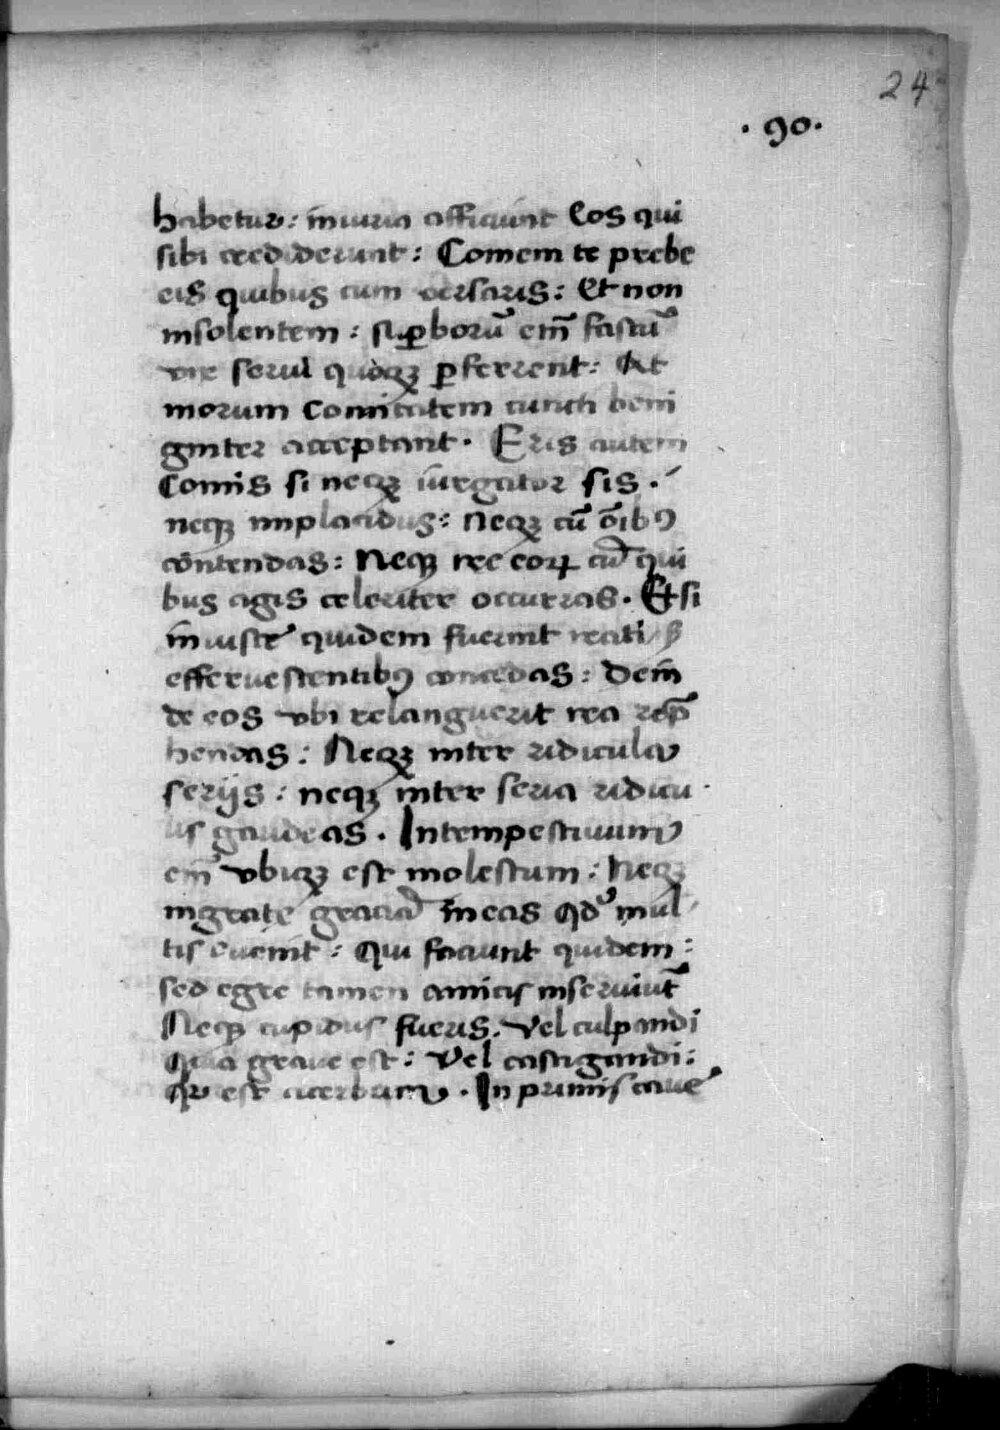 24
· 90 ·
habetur: iniuria afficiunt Eos qui
sibi crediderunt: Comem te prebe
eis quibus cum versaris: Et non
insolentem: suꝑborū em̄ fastū
vix serui quoqꝫ ꝑferrent: At
morum Comitatem cuncti beni
gniter acceptant. Eris autem
Comis si neqꝫ iurgator sis.
neqꝫ implacidus: Neqꝫ cū oībꝰ
contendas: Neqꝫ rec eoꝝ cū qui
bus agis celeriter occurras. Et si
iniuste quidem fuerint
efferuescentibꝰ concedas: Dein
de eos vbi relanguerit rep̄
hendas: Neqꝫ inter ridicula
serijs: neqꝫ inter seria ridicu
lis gaudeas. Intempestiuum
em̄ vbiqꝫ est molestum: Neqꝫ
ingrate graciā ineas qđ mul
tis euenit: Qui faciunt quidem:
sed egre tamen amicis inseruiūt
Neqꝫ cupidus fueris. Vel culpandi
Quia graue est: Vel castigandi:
est acerbum. In primis caue